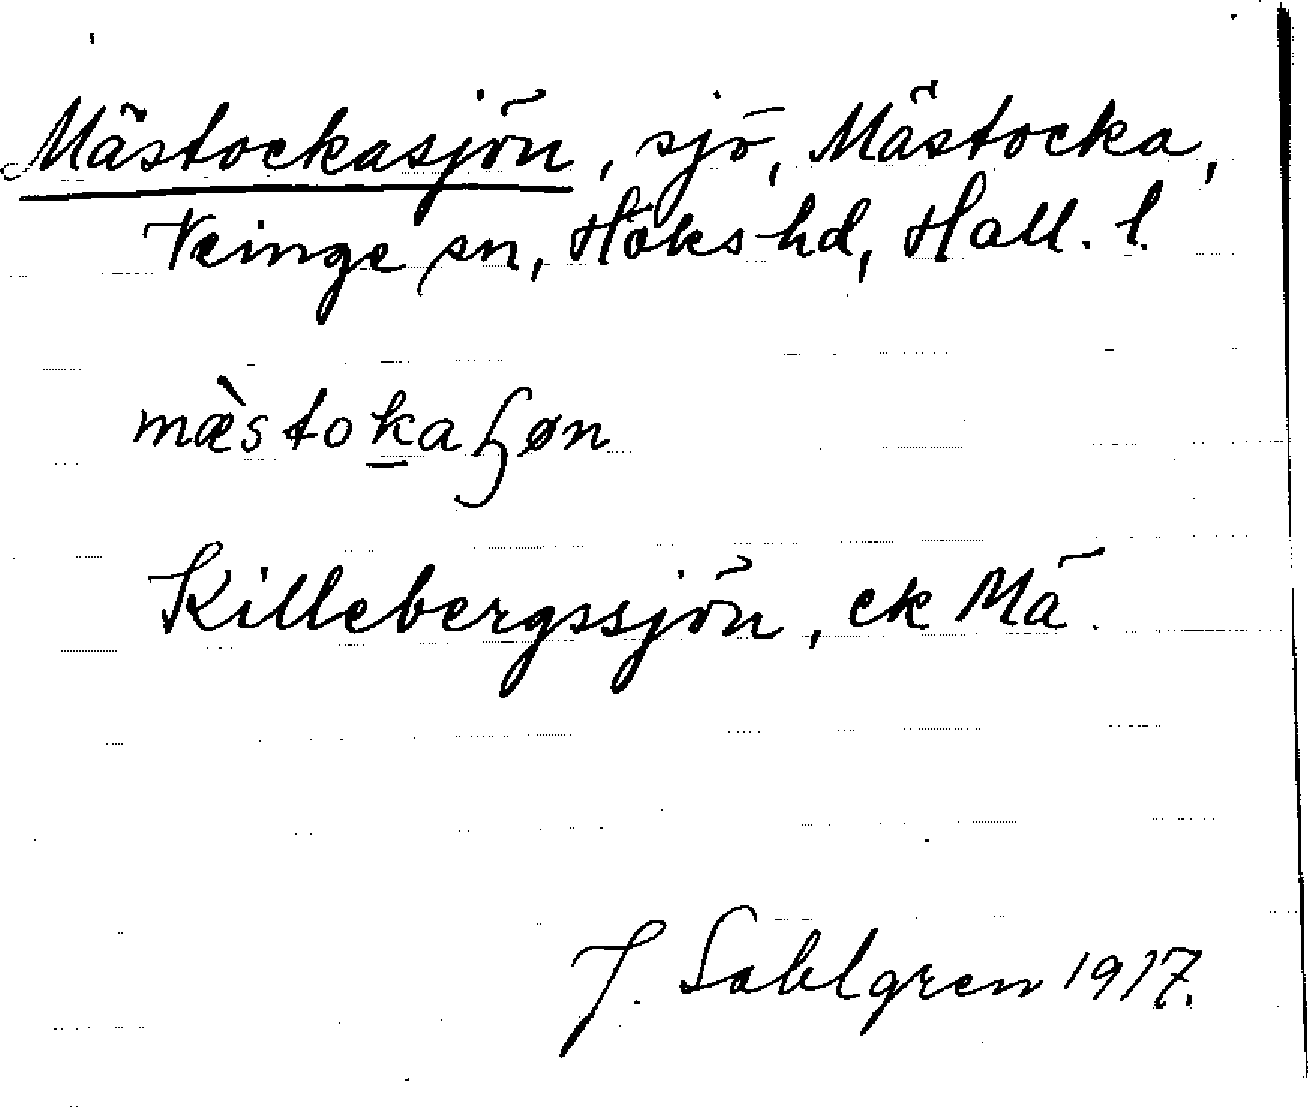 Mästockasjön, sjö, Mästocka,
Veinge sn, Höks hd, Hall. l.
mæ̀stokaɧøn
Killebergssjön, ek Mä.
J. Sahlgren 1917.